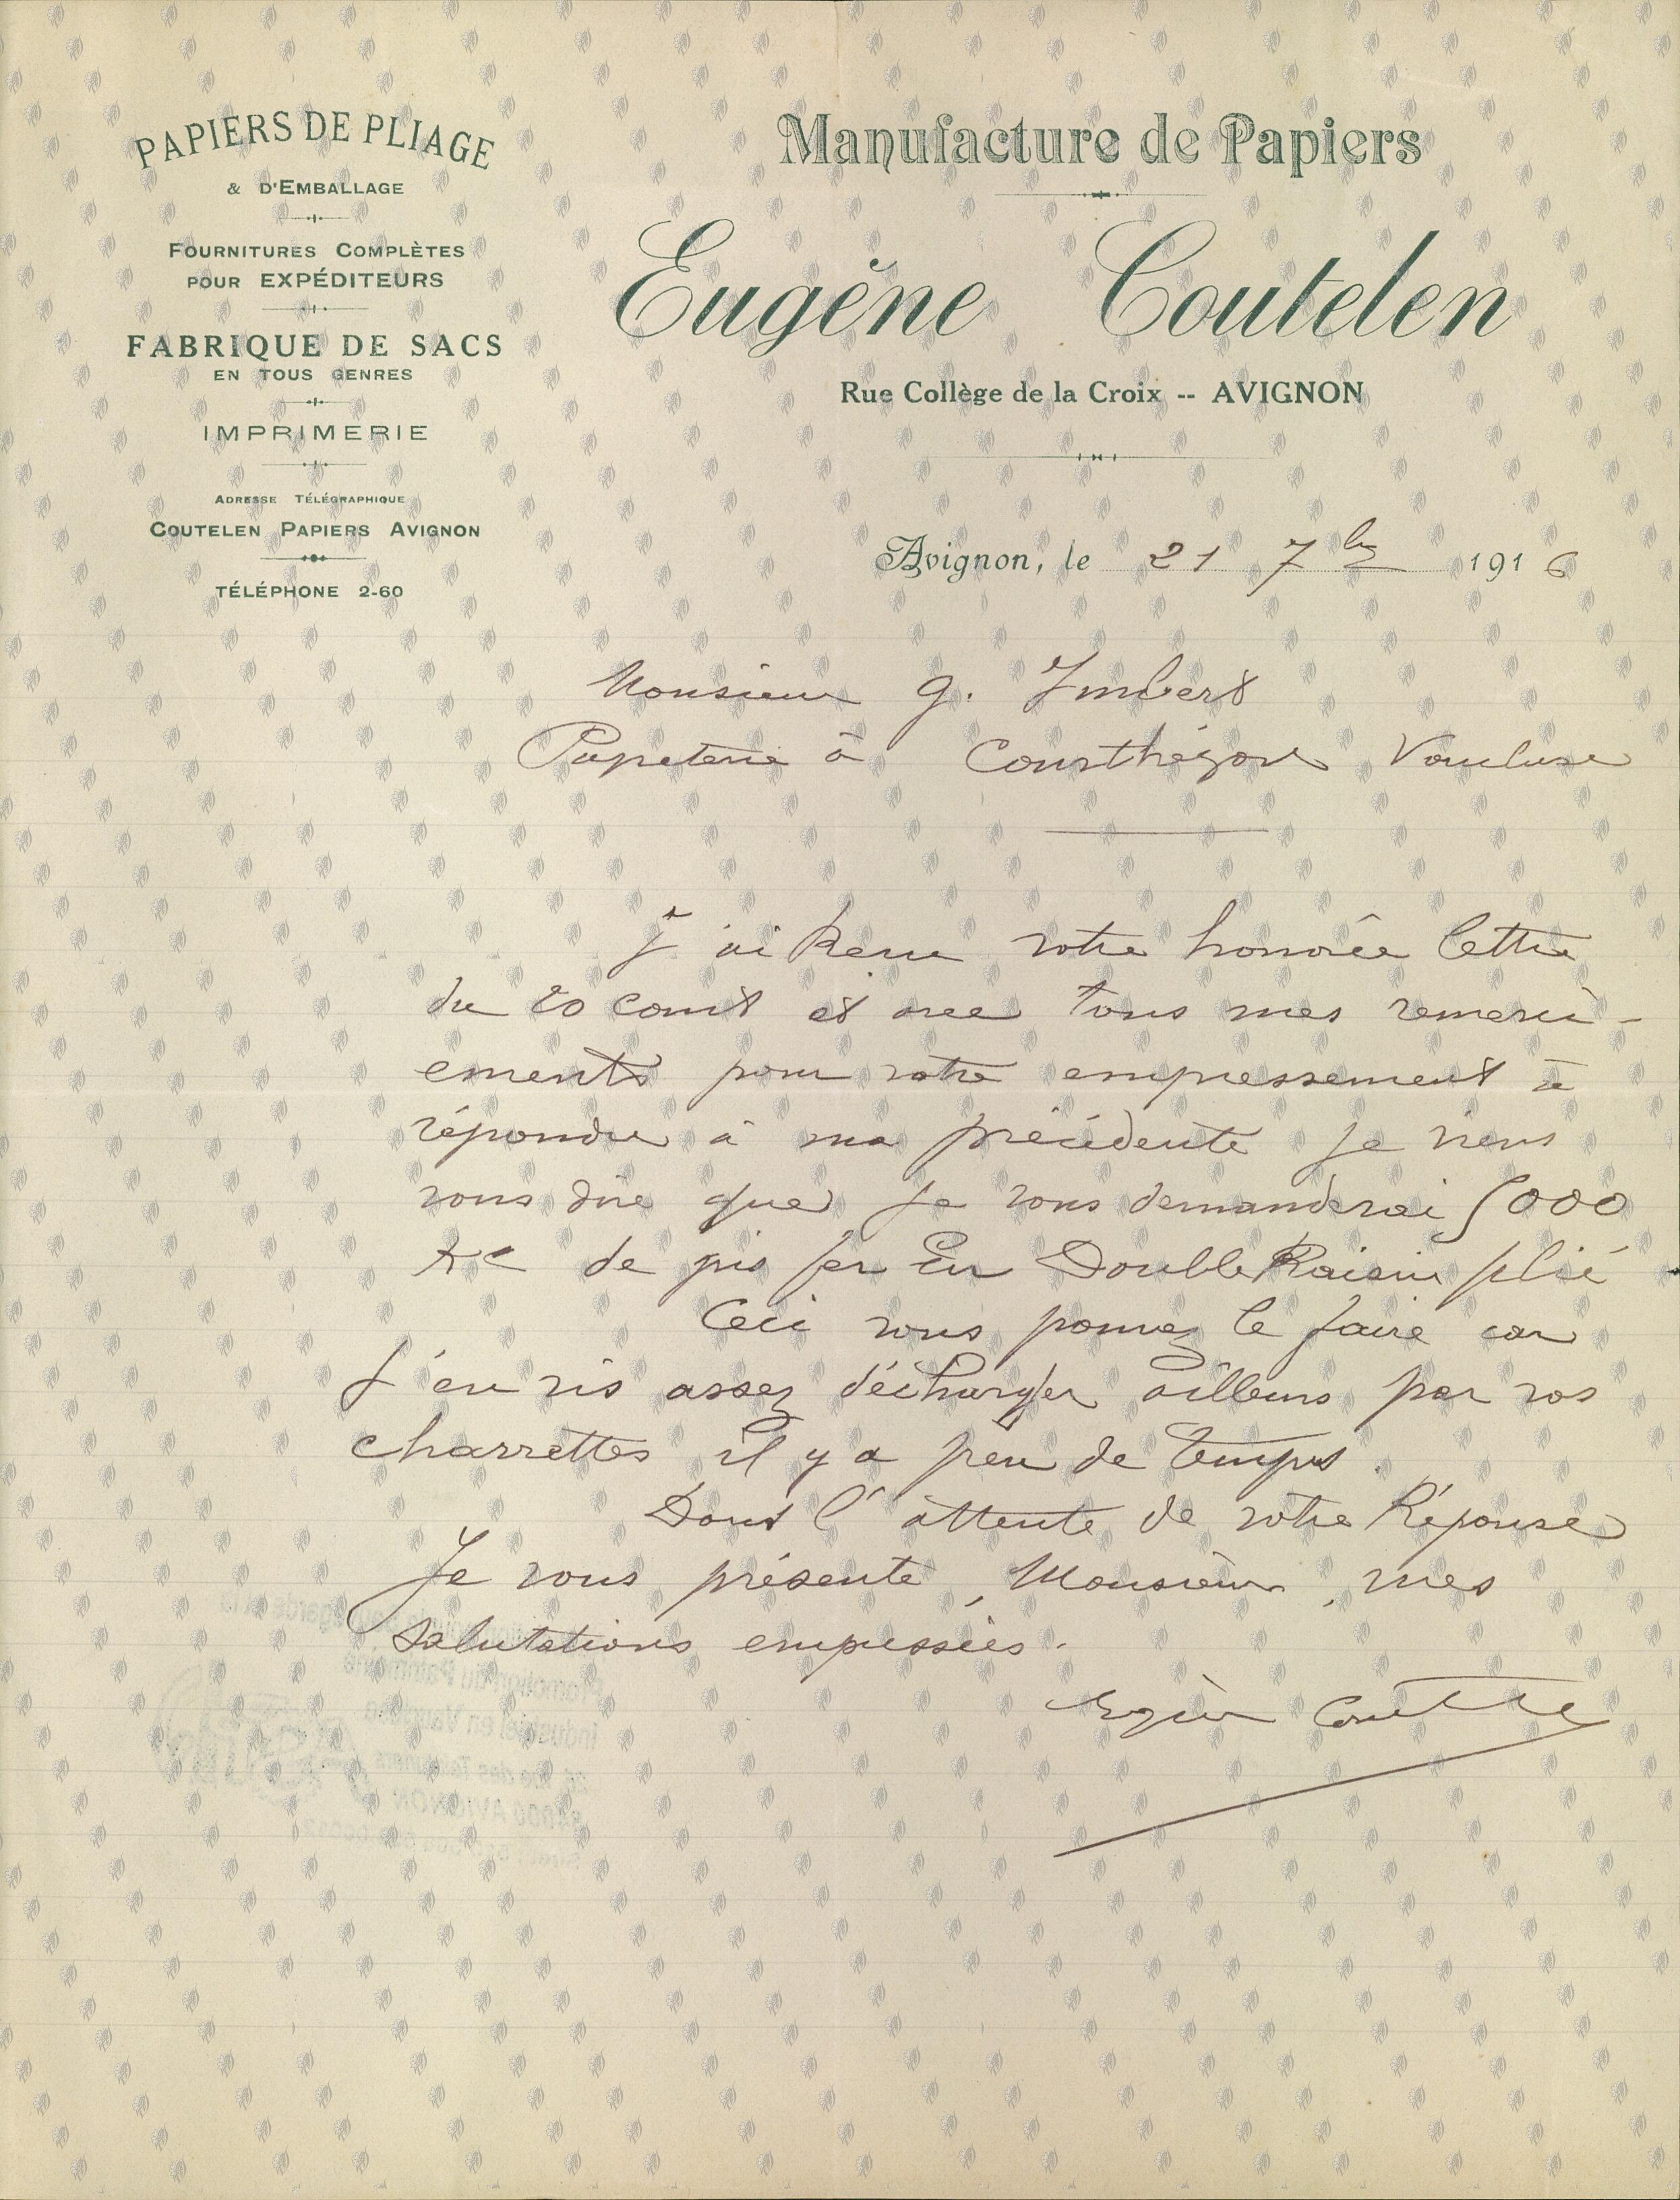 PAPIERS DE PLIAGE
& D'EMBALLAGE
FOURNITURES COMPLÈTES
POUR EXPÉDITEURS
FABRIQUE DE SACS
EN TOUS GENRES
IMPRIMERIE
ADRESSE TÉLÉGRAPHIQUE
COUTELEN PAPIERS AVIGNON
TÉLÉPHONE 2-60
Manufacture de Papiers
Eugène Coutelen
Rue Collège de la Croix -- AVIGNON
Avignon, le 21 7bre 1916
Monsieur G. Imbert
Papeterie à Courthézon Vaucluse
J'ai Recu votre honorée lettre
du 20 court et avec tous mes remerci-
ements pour votre empressement à
répondre à ma précédente je viens
vous dire que je vous demanderai 5000
de gris fer En Double Raisin plié
Ceci vous pouvez le faire car
J'en vis assez décharger ailleurs par vos
charrettes il y a peu de temps.
Dans l'attente de votre Réponse
Je vous présente, Monsieur, mes
salutations empressées.
Eugène Coutelen
Promotion du Patrimoine
Industriel en Vaucluse
rue des Teinturiers
84000 AVIGNON